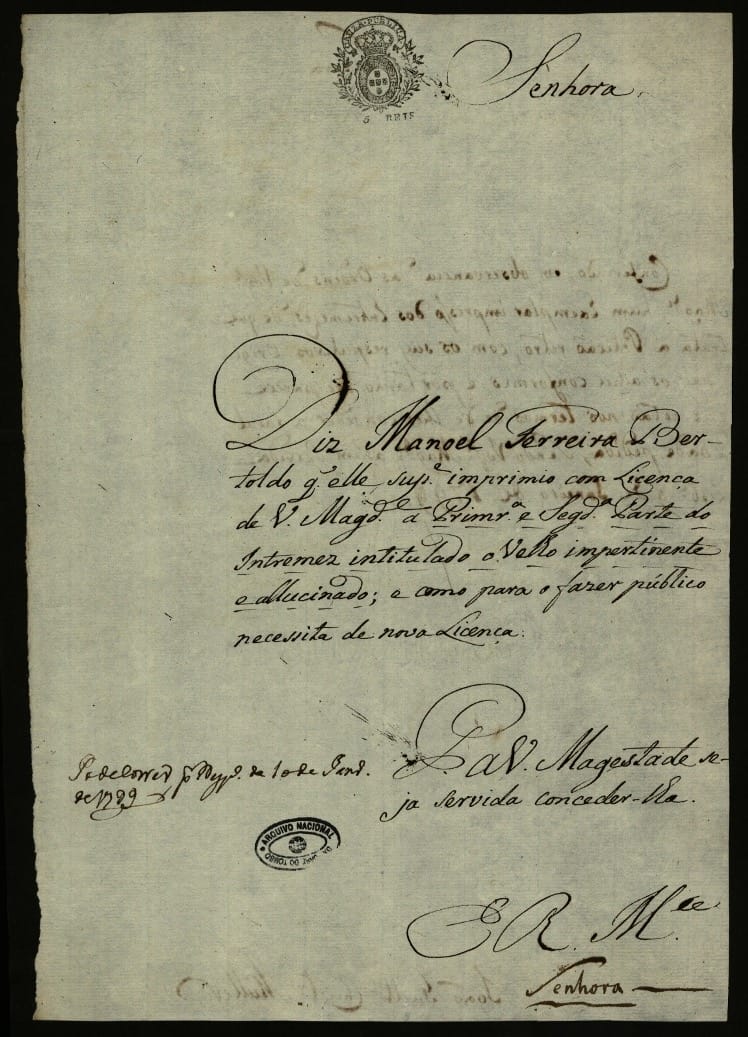 CAUZA PUBLICA
5 REIS
Senhora.
Diz Manoel Ferreira Ber-
toldo q.̃ elle sup.e imprimio com Licença
de V. Magd.e a Primr.a e Segd.a Parte do
Intremez intitulado o Velho impertinente
e allucinado; e como para o fazer público
necessita de nova Licença.
P. a V. Magestade se-
ja servida conceder-lha.
Pode correr de 10 de Janr.
de 1799
ARQUIVO NACIONAL
DA TORRE DO TOMBO
E R. M.ce
Senhora